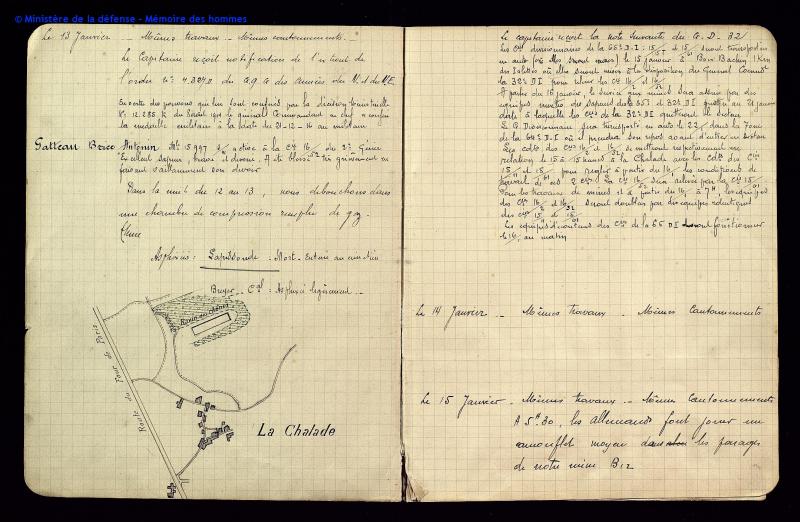 © Ministère de la défense - Mémoire des hommes
Le 13 Janvier _ Mêmes travaux _ Mêmes cantonnements _
Le Capitaine reçoit notification de l'extrait de
l'ordre n° 4.327 D du G.Q.G des Armées du N. et du N.E.
En vertu des pouvoirs qui lui sont conférés par la décision ministérielle
N° 12.285 K du le Général Commandant en chef a conféré
la médaille militaire à la date du 21-12-14 au militaire
Gatteau Brice Antonin Mle 15997 active à la Cie 16/ du 2e Génie
"Excellent sapeur, brave et dévoué. A été blessé très grièvement en
faisant vaillamment son devoir
Dans la nuit du 12 au 13, nous débouchons dans
une chambre de compression remplie de gaz.
Asphyxiés: _ Mort _ Enterré au cimetière
Breyer _ Cal : Asphyxié légèrement _
Route du Four de Paris
La Chalade
Le capitaine reçoit la note suivante du G. D. 32
Les Cies divisionnaires de la 55e D.I : 15/ et 15/ seront transportées
en auto le 15 janvier à Bois Bachin 1 Km
des Islettes où elles seront mises à la disposition du Général Commt
la 32e DI pour relever les Cies 16/ et 16/
A partir du 16 janvier, le service des mines sera assuré par des
équipes mixtes des sapeurs de la 55e et 32e DI jusqu'au 21 janvier
date à laquelle les Cies de la 32e DI quitteront le secteur
Le G. Divisionnaire sera transporté en auto le 22/ dans la zone
de la 64e D.I où il prendra son repos avant d'entrer en secteur
Les Cdts des Cies 16/ et 16/ se mettront respectivement en
relation le 15 à 15 heures à la Chalade avec les Cdts des Cies
15/ et 15/ pour régler à partir du 16/ les conditions de
travail de ces 2 Cies. La Cie 16/ sera relevée par la Cie 15/
les travaux de mines et à partir du 16/ à 7H, les équipes
des Cies 16/ et 16/ seront doublées par des équipes identiques
des Cies 15/ et 15/
Les équipes d'écouteurs des Cies de la 55 DI devront fonctionner
le 16/ au matin
Le 14 Janvier _ Mêmes travaux _ Mêmes Cantonnements
Le 15 Janvier _ Mêmes travaux _ Mêmes Cantonnements
A 5H.30, les allemands font jouer un
camouflet moyen dans les parages
de notre mine B12